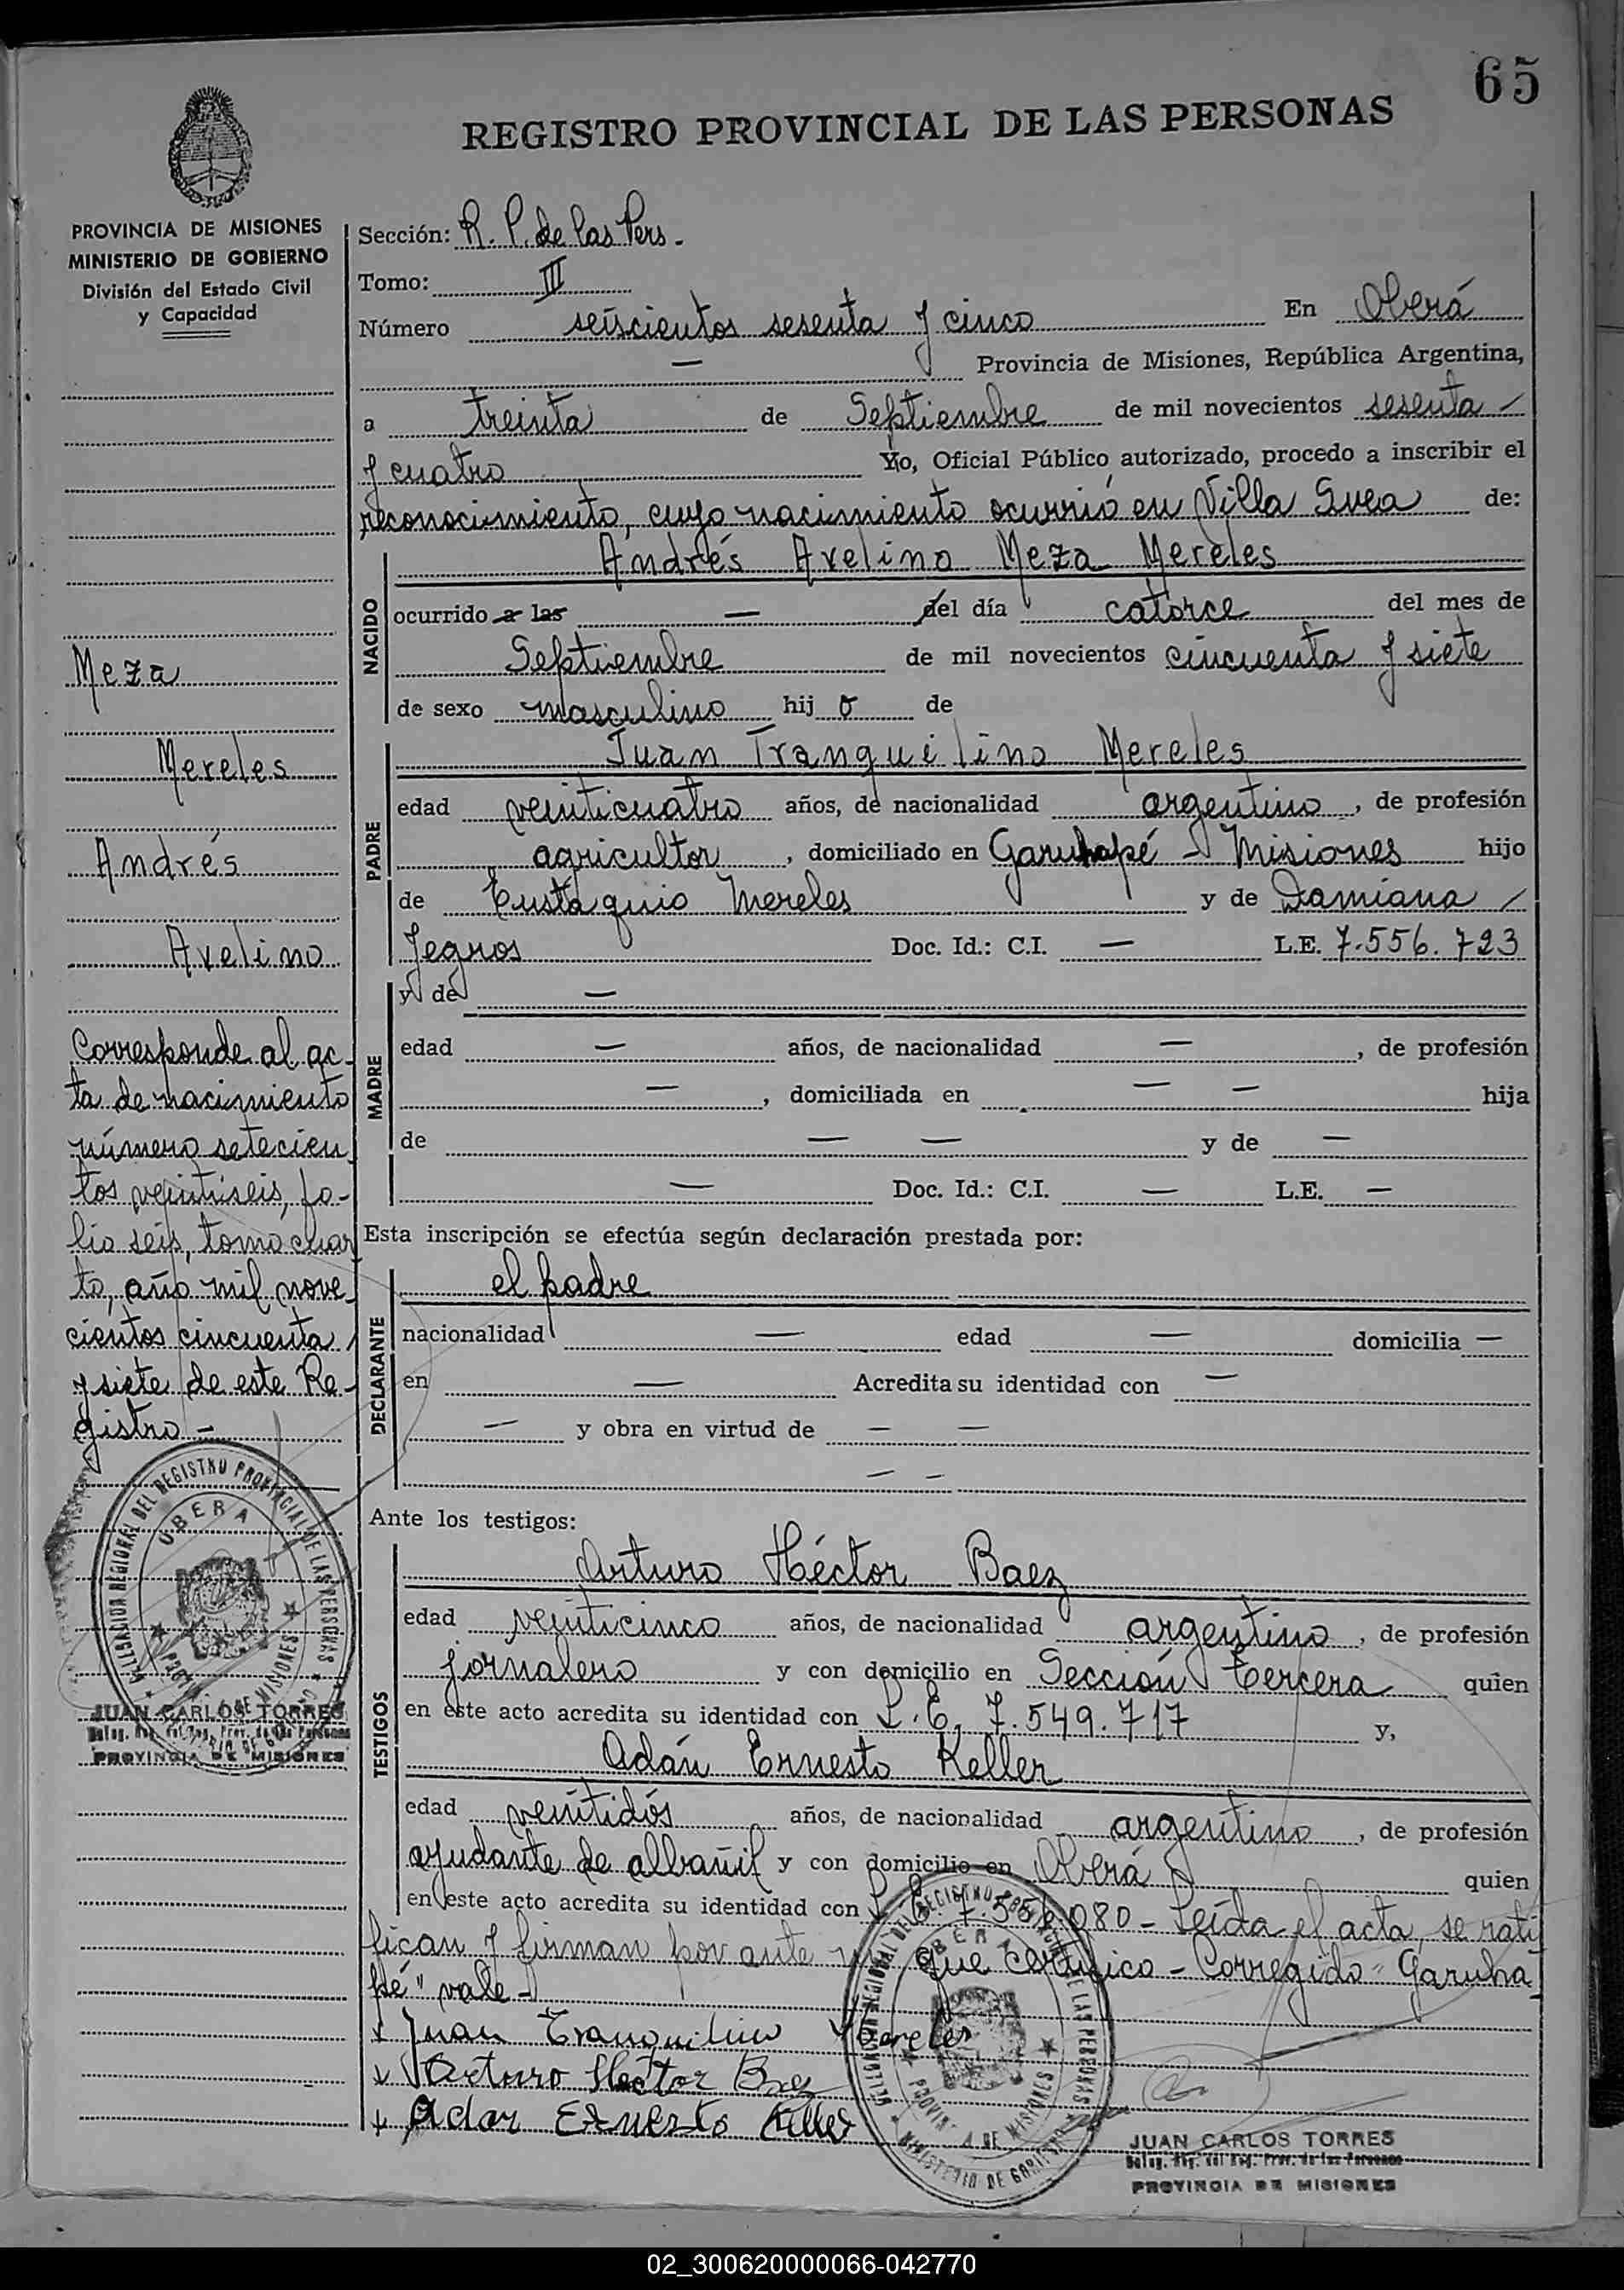 65
REGISTRO PROVINCIAL DE LAS PERSONAS
PROVINCIA DE MISIONES
MINISTERIO DE GOBIERNO
División del Estado Civil
y Capacidad
Meza
Mereles
Andrés
Avelino
Corresponde al ac-
ta de nacimiento
número setecien
tos veintiseis, fo-
lio seis, tomo cuar
to, año mil nove
cientos cincuenta
y siete de este Re-
gistro -
DELEGACION REGIONAL DEL REGISTRO PROVINCIAL DE LAS PERSONAS
OBERA
PROVINCIA DE MISIONES
MINISTERIO DE GOBIERNO
JUAN CARLOS TORRES
PROVINCIA DE MISIONES
Sección: R. P. de las Pers.
Tomo: III
Número seiscientos sesenta y cinco En Oberá
— Provincia de Misiones, República Argentina,
a treinta de Septiembre de mil novecientos sesenta /
y cuatro Yo, Oficial Público autorizado, procedo a inscribir el
reconocimiento, cuyo nacimiento ocurrió en Villa Svea de:
NACIDO
Andrés Avelino Meza Mereles
ocurrido a las — del día catorce del mes de
Septiembre de mil novecientos cincuenta y siete
de sexo masculino hij o de
PADRE
Juan Tranquilino Mereles
edad veinticuatro años, de nacionalidad argentino, de profesión
agricultor, domiciliado en Garuhapé - Misiones hijo
de Eustaquio Mereles y de Damiana /
Jegros Doc. Id.: C.I. — L.E. 7.556.723
MADRE
y de —
edad — años, de nacionalidad —, de profesión
—, domiciliada en — — hija
de — — y de —
— Doc. Id.: C.I. — L.E. —
Esta inscripción se efectúa según declaración prestada por:
DECLARANTE
el padre
nacionalidad — edad — domicilia —
en — Acredita su identidad con —
— y obra en virtud de — —
— —
Ante los testigos:
TESTIGOS
Arturo Héctor Baez
edad veinticinco años, de nacionalidad argentino, de profesión
jornalero y con domicilio en Sección Tercera quien
en este acto acredita su identidad con L.E. 7.549.717 y,
Adán Ernesto Keller
edad veintidós años, de nacionalidad argentino, de profesión
ayudante de albañil y con domicilio en Oberá quien
en este acto acredita su identidad con L.E. 080 - Leída el acta, se rati
fican y firman por ante que certifico - Corregido "Garuha
pé" vale -
Juan Tranquilino Mereles
Arturo Hector Baez
Adan Ernesto Keller
DELEGACION REGIONAL DEL REGISTRO PROVINCIAL DE LAS PERSONAS
OBERA
PROVINCIA DE MISIONES
MINISTERIO DE GOBIERNO
JUAN CARLOS TORRES
Deleg. Reg. del Reg. Prov. de las Personas
PROVINCIA DE MISIONES
02_300620000066-042770